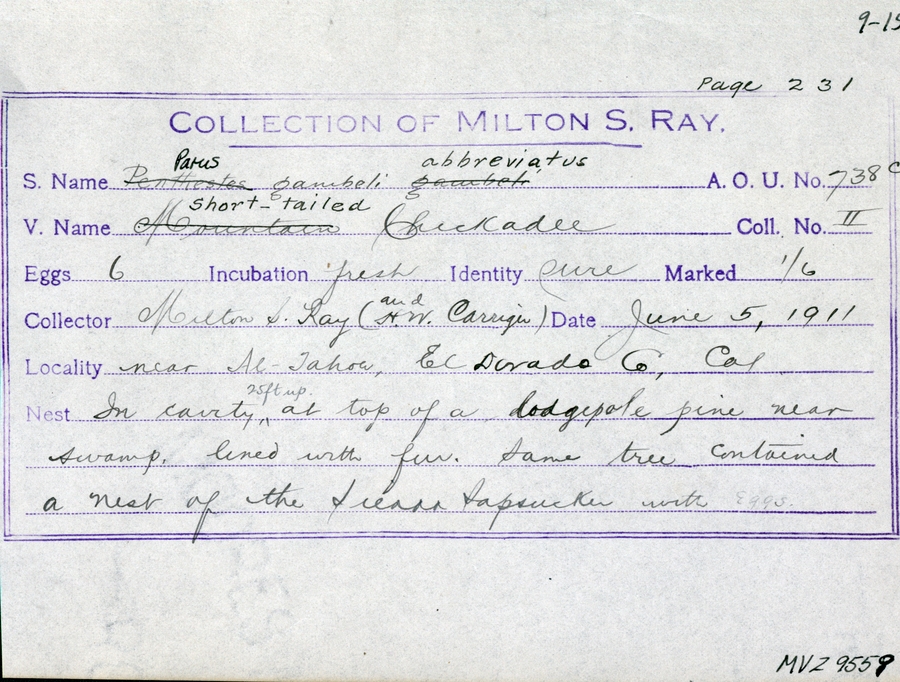 9-15
Page 231
COLLECTION OF MILTON S. RAY.
Parus abbreviatus
S. Name Penthestes gambeli gambeli A. O. U. No. 738 c
short-tailed
V. Name Mountain Chickadee Coll. No. II
Eggs 6 Incubation fresh Identity sure Marked 1/6
and
Collector Milton S. Ray (H. W. Carriger) Date June 5, 1911
Locality near Al-Tahoe, El Dorado Co, Cal
25ft up.
Nest In cavity, at top of a lodgepole pine near
swamp. lined with fur. Same tree contained
a nest of the Sierra Sapsucker with eggs.
MVZ 9559